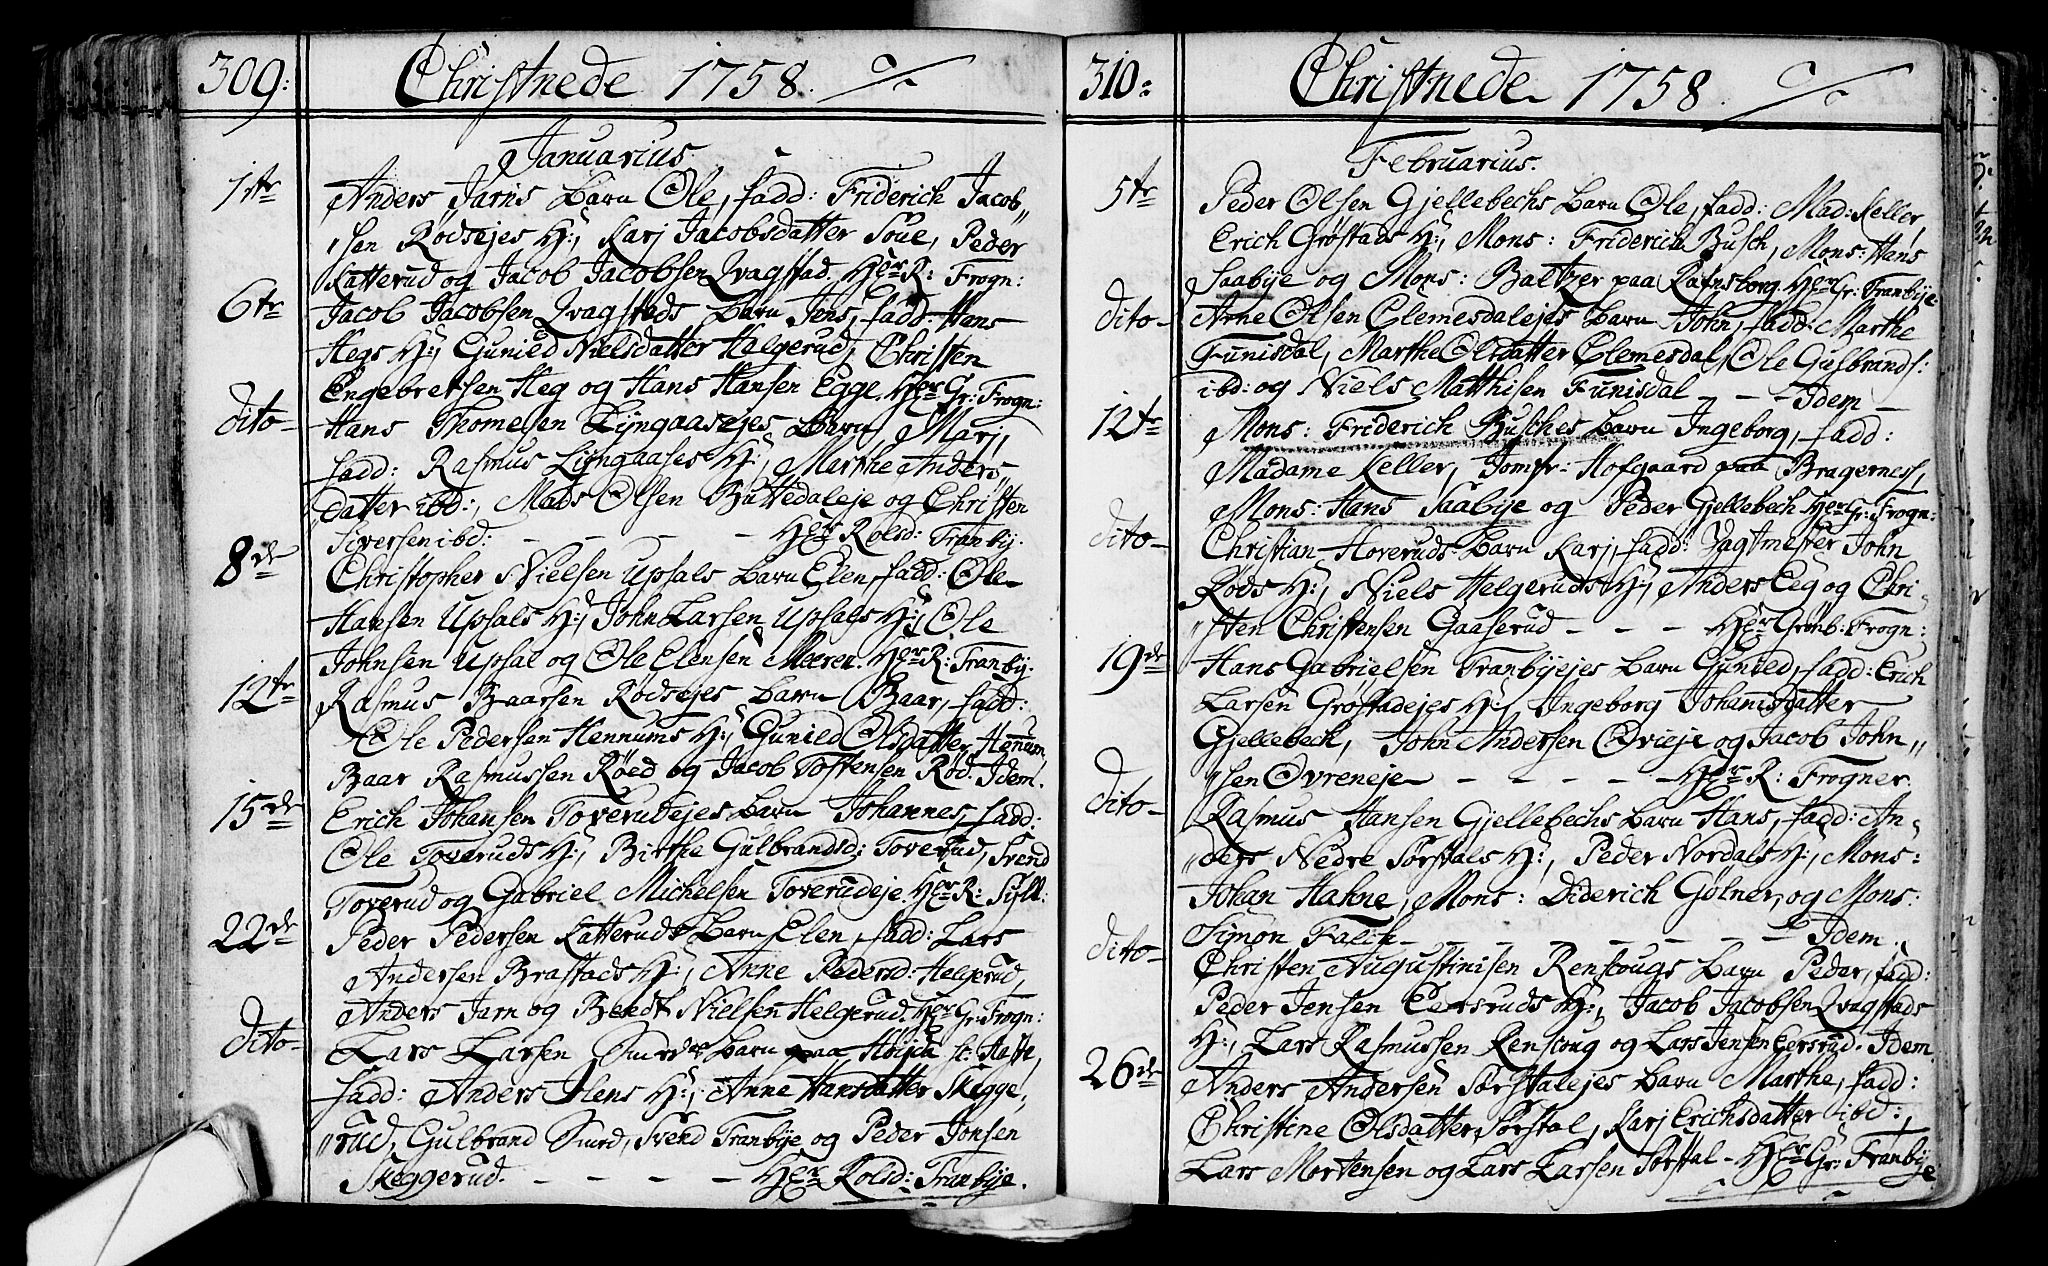 309:
Christnede 1758.
Januarius
1ste Anders Jarns barn Ole, fadd: Friderich Jacob„
„sen Rødsejes H:, Karj Jacobsdatter Soue, Peder
Katterud og Jacob Jacobsen Qvagstad. Hr R: Frogn:
6te Jacob Jacobsen Qvagstads barn Jens, fadd: Hans
Hegs H:, Gunild Nielsdatter Helgerud, Christen
Engebretsen Heg og Hans Hansen Egge. Hr Gr: Frogn:
dito- Hans Thomesen Lyngaasejes barn Marj,
fadd: Rasmus Lyngaases H:, Marthe Anders„
datter ibd:, Mads Olsen Buttedaleje og Christen
Siversen ibd: - - - - - Hr Rolsd: Tranby.
8de Christopher Nielsen Upsals barn Elen, fadd: Ole
Hansen Upsals H:, John Larsen Upsals H:, Ole
Johnsen Upsal og Ole Elensen Meeren. Hr R: Tranby.
12te Rasmus Baarsen Rødsejes barn Baar, fadd:
Ole Pedersen Hennums H:, Gunild Olsdatter Hennum,
Baar Rasmussen Røed og Jacob Tostensen Rød. Idem.
15de Erich Johansen Toverudejes barn Johannes, fadd:
Ole Toveruds H:, Birthe Gulbrandsd: Toverud, Svend
Toverud og Gabriel Michelsen Toverudeje. Hr R: Syll:
22de Peder Pedersen Katteruds barn Elen, fadd: Lars
Andersen Brastads H:, Anne Pedersd: Helgerud,
Anders Jarn og Bendt Nielsen Helgerud. Hr Gr: Frogn:
dito- Lars Larsen Smeds barn paa
fadd: Anders H:, Anne Hansdatter Skegge„
„rud, Gulbrand Smed, Svend Tranbye og Peder Jonsen
Skeggerud. - - - - Hr Rolsd: Tranbye.
310:
Christnede 1758.
Februarius.
5te Peder Olsen Gjellebechs barn Ole, fadd: Mad: Keller,
Erich Grøstads H:, Mons: Friderich Busch, Mons: Hans
Saabye og Mons: Baltzer paa Rafnsborg. Hr Gr: Tranbye
dito- Arne Olsen Clemesdalejes barn John, fadd: Marthe
Funisdal, Marthe Olsdatter Clemesdal, Ole Gulbrands:
ibd: og Niels Matthisen Funisdal - - - Idem -
12te Mons: Friderich Busches barn Ingeborg, fadd:
Madame Keller, Jomfr: Hofgaard paa Bragerness,
Mons: Hans Saabye og Peder Gjellebech Hr Gr: Frogn:
dito- Christian Hoveruds barn Karj, fadd: Jagtmester John
Røds H:, Niels Helgeruds H:, Anders Eeg og Chri„
„sten Christensen Gaaserud - - - Hr Grønb: Frogn:
19de Hans Gabrielsen Tranbyejes barn Gunild, fadd: Erich
Larsen Grøstadejes H:, Ingeborg Johannisdatter
Gjellebech, John Andersen Øvrjeje og Jacob John„
„sen Øvreneje - - - - - Hr R: Frogner.
dito- Rasmus Hansen Gjellebechs barn Hans, fadd: An„
„ders Nedre Sørsdals H:, Peder Nordals H:, Mons:
Johan Hahne, Mons: Diderich Gølner, og Mons:
Simon Falch - - - - - - - Idem.
dito- Christen Augustinisen Renscougs barn Peder, fadd:
Peder Jensen Eersruds H:, Jacob Jacobsen Qvagstads
H:, Lars Rasmussen Renscoug og Lars Jensen Eersrud. Idem.
26de Anders Andersen Sørstalejes barn Marthe, fadd:
Christine Olsdatter Sørstal, Karj Erichsdatter ibd:,
Lars Mortensen og Lars Larsen Sørstal - Hr Gr: Tranbye